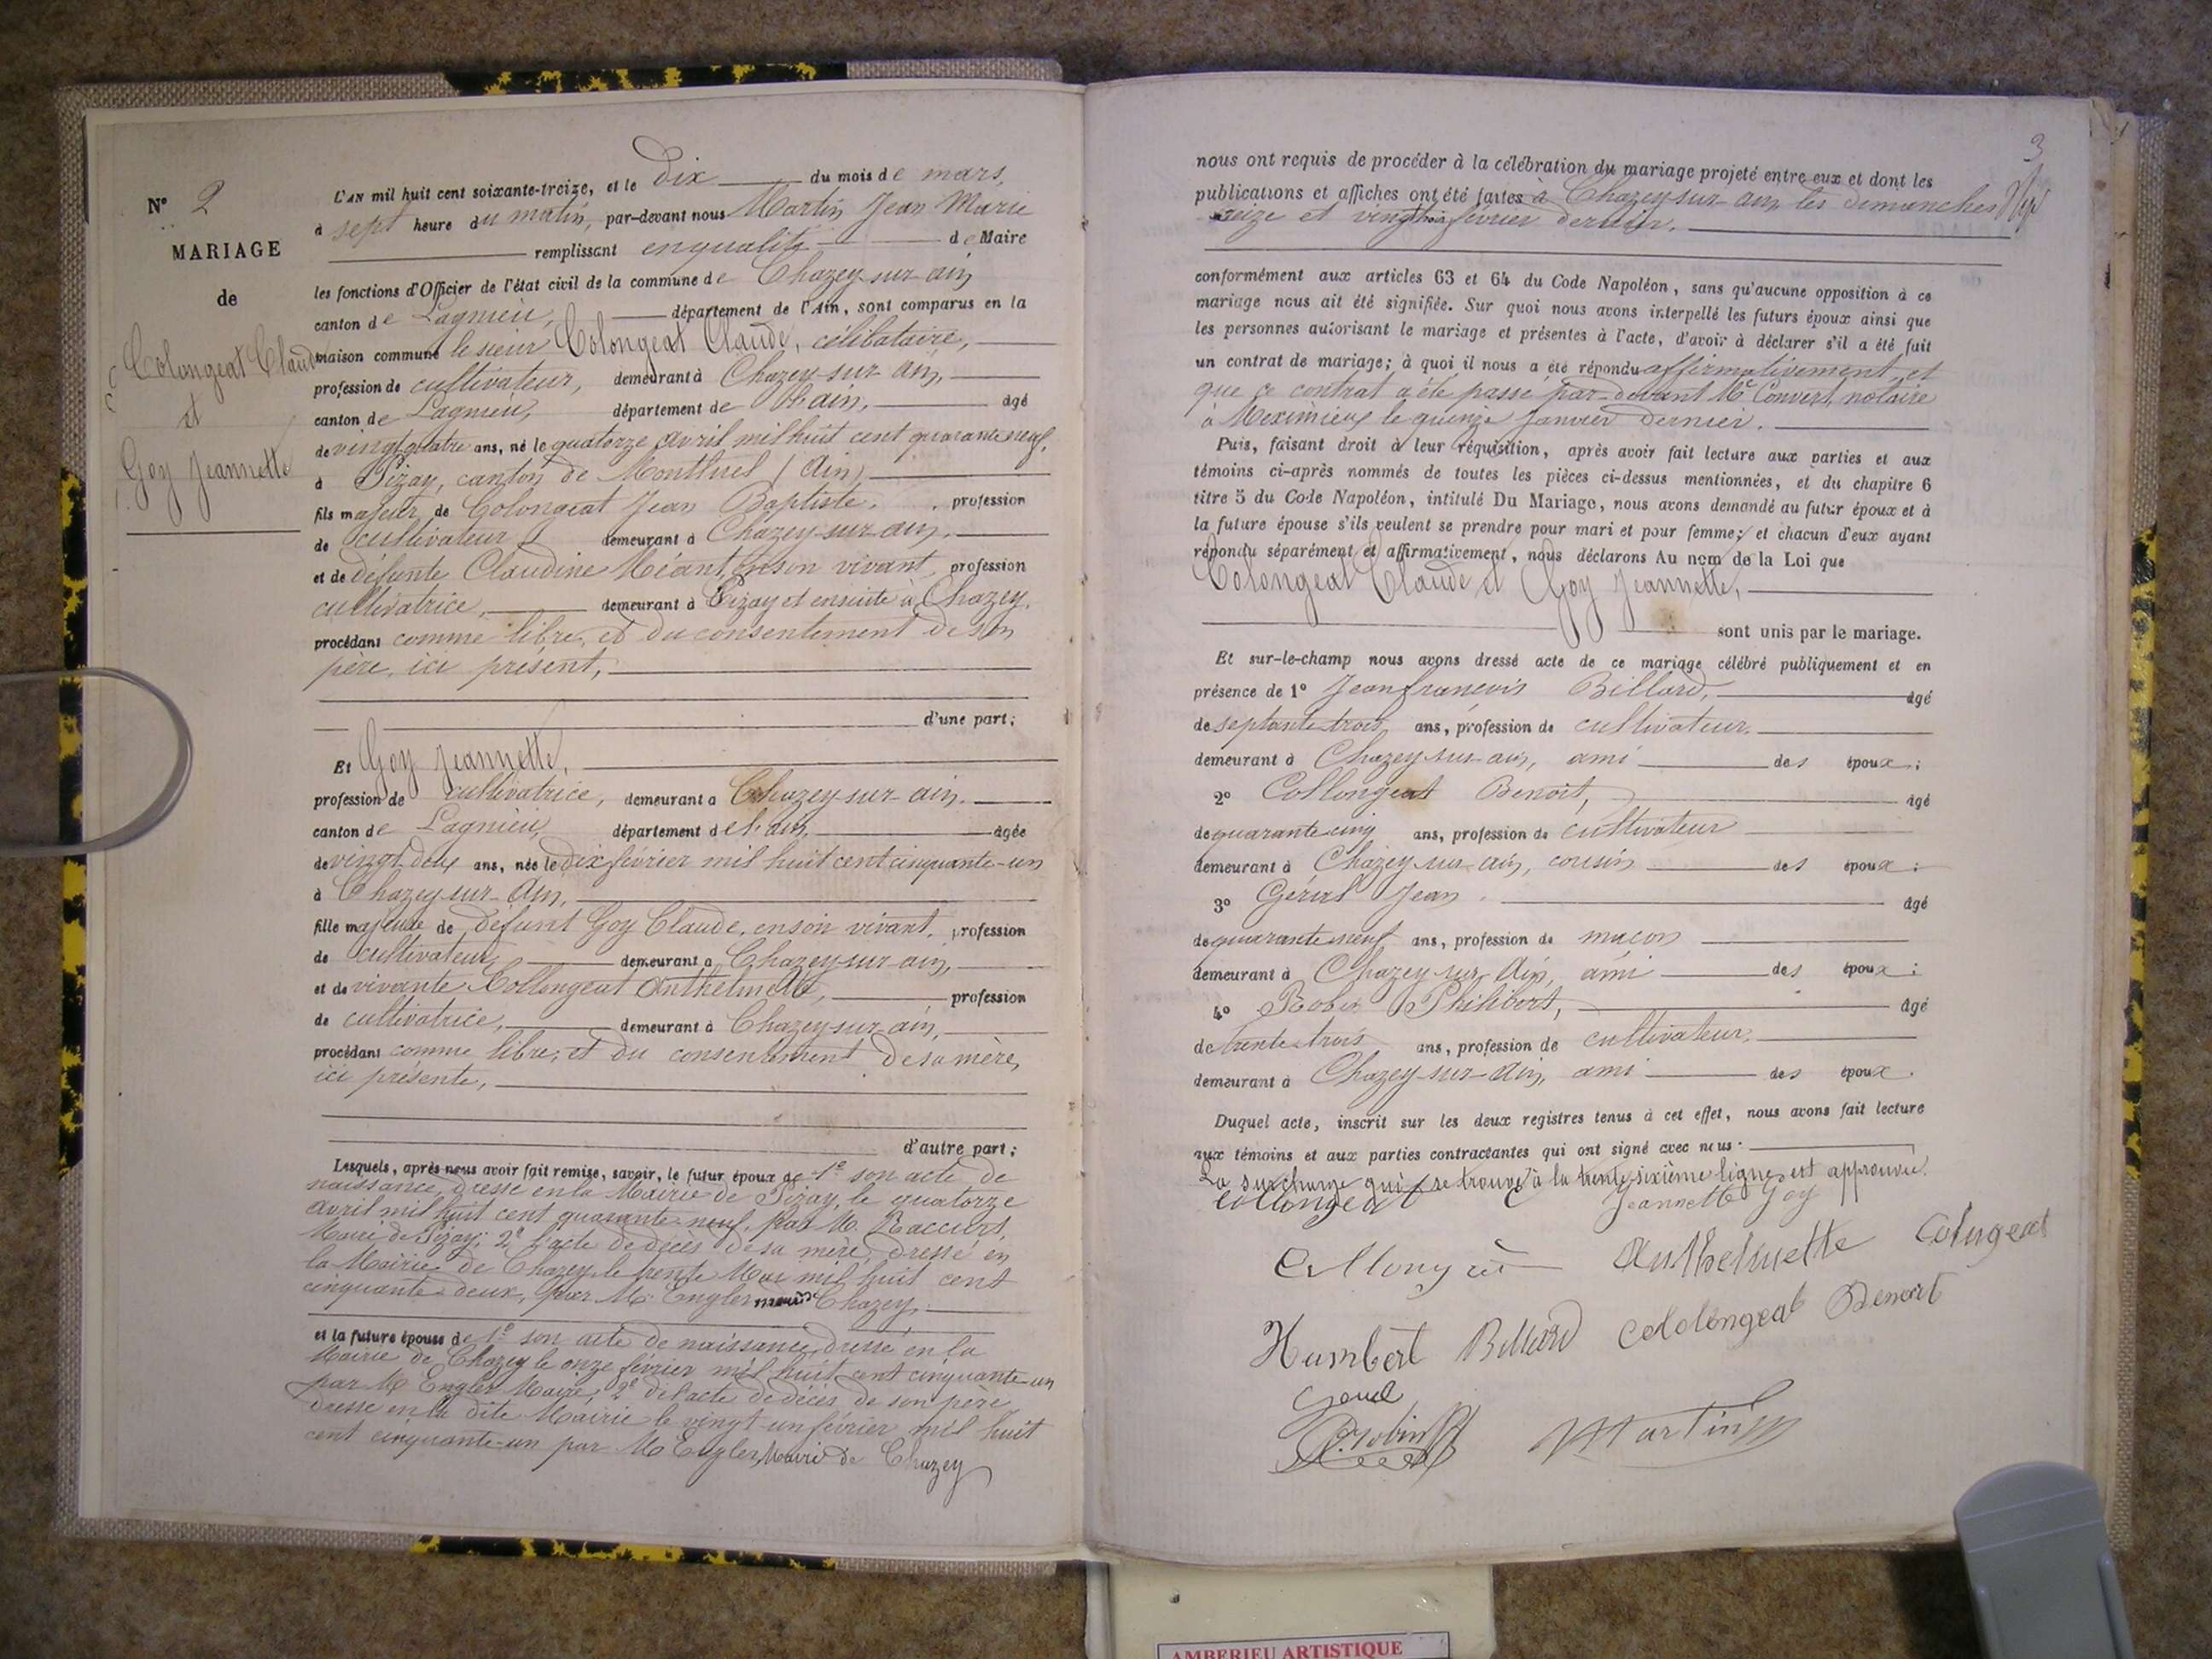 N° 2
MARIAGE
de
Colongeat Claude
et
Goy Jeannette
L'AN mil huit cent soixante-treize, et le dix du mois de mars,
à sept heure du matin, par-devant nous Martin Jean Marie
remplissant en qualité de Maire
les fonctions d'Officier de l'état civil de la commune de Chazey-sur-ain
canton de Lagnieu, département de l'Ain, sont comparus en la
maison commune le sieur Colongeat Claude, célibataire,
profession de cultivateur, demeurant à Chazey-sur-Ain,
canton de Lagnieu, département de l'ain, agé
de vingt quatre ans, né le quatorze avril mil huit cent quarante neuf,
à Pizay, canton de Montluel (Ain),
fils majeur de Colongeat Jean Baptiste, profession
de cultivateur demeurant à Chazey-sur-ain,
et de défunte Claudine Méant, en son vivant, profession
cultivatrice, demeurant à Pizay et ensuite à Chazey,
procédant comme libre, et du consentement de son
père, ici présent,
d'une part;
Et Goy Jeannette,
profession de cultivatrice, demeurant à Chazey-sur-ain,
canton de Lagnieu, département de l'ain, agée
de vingt deux ans, née le dix février mil huit cent cinquante-un
à Chazey-sur-Ain,
fille majeure de défunt Goy Claude, en son vivant, profession
de cultivateur, demeurant à Chazey-sur-ain,
et de vivante Collongeat Anthelmette, profession
de cultivatrice, demeurant à Chazey-sur-ain,
procédant comme libre, et du consentement de sa mère,
ici présente,
d'autre part;
Lesquels, après nous avoir fait remise, savoir, le futur époux de 1° son acte de
naissance, dressé en la Mairie de Pizay, le quatorze
avril mil huit cent quarante-neuf, par M.
Maire de Pizay; 2° l'acte de décès de sa mère, dressé en
la Mairie de Chazey le trente Mai mil huit cent
cinquante-deux, par M. Engler Chazey,
et la future épouse de 1° son acte de naissance, dressé en la
Mairie de Chazey le onze février mil huit cent cinquante-un
par M Engler Maire, 2° de l'acte de décès de son père
dressé en la dite Mairie le vingt-un février mil huit
cent cinquante-un par M Engler, Maire de Chazey
3
nous ont requis de procéder à la célébration du mariage projeté entre eux et dont les
publications et affiches ont été faites à Chazey-sur-ain les dimanches
seize et vingt trois février dernier.
conformément aux articles 63 et 64 du Code Napoléon, sans qu'aucune opposition à ce
mariage nous ait été signifiée. Sur quoi nous avons interpellé les futurs époux ainsi que
les personnes autorisant le mariage et présentes à l'acte, d'avoir à déclarer s'il a été fait
un contrat de mariage; à quoi il nous a été répondu affirmativement, et
que ce contrat a été passé par-devant Me Convert, notaire
à Meximieux le quinze janvier dernier.
Puis, faisant droit à leur réquisition, après avoir fait lecture aux parties et aux
témoins ci-après nommés de toutes les pièces ci-dessus mentionnées, et du chapitre 6
titre 5 du Code Napoléon, intitulé Du Mariage, nous avons demandé au futur époux et à
la future épouse s'ils veulent se prendre pour mari et pour femme; et chacun d'eux ayant
répondu séparément et affirmativement, nous déclarons Au nom de la Loi que
Colongeat Claude et Goy Jeannette,
sont unis par le mariage.
Et sur-le-champ nous avons dressé acte de ce mariage célébré publiquement et en
présence de 1° Jean françois Billard, âgé
de septante-trois ans, profession de cultivateur.
demeurant à Chazey-sur-ain, ami des époux;
2° Collongeat Benoît, âgé
de quarante cinq ans, profession de cultivateur
demeurant à Chazey-sur-ain, cousin des époux;
3° Jean âgé
de quarante neuf ans, profession de maçon
demeurant à Chazey-sur-Ain, ami des époux;
4° Robin Philibert, âgé
de trente-trois ans, profession de cultivateur,
demeurant à Chazey-sur-Ain, ami des époux.
Duquel acte, inscrit sur les deux registres tenus à cet effet, nous avons fait lecture
aux témoins et aux parties contractantes qui ont signé avec nous.
La surcharge qui se trouve à la trente-sixième ligne est approuvée.
Collongeat Jeannette Goy
Anthelmette Colngeat
Humbert Billard Colongeat Benoit
Robin Martin
AMBERIEU ARTISTIQUE